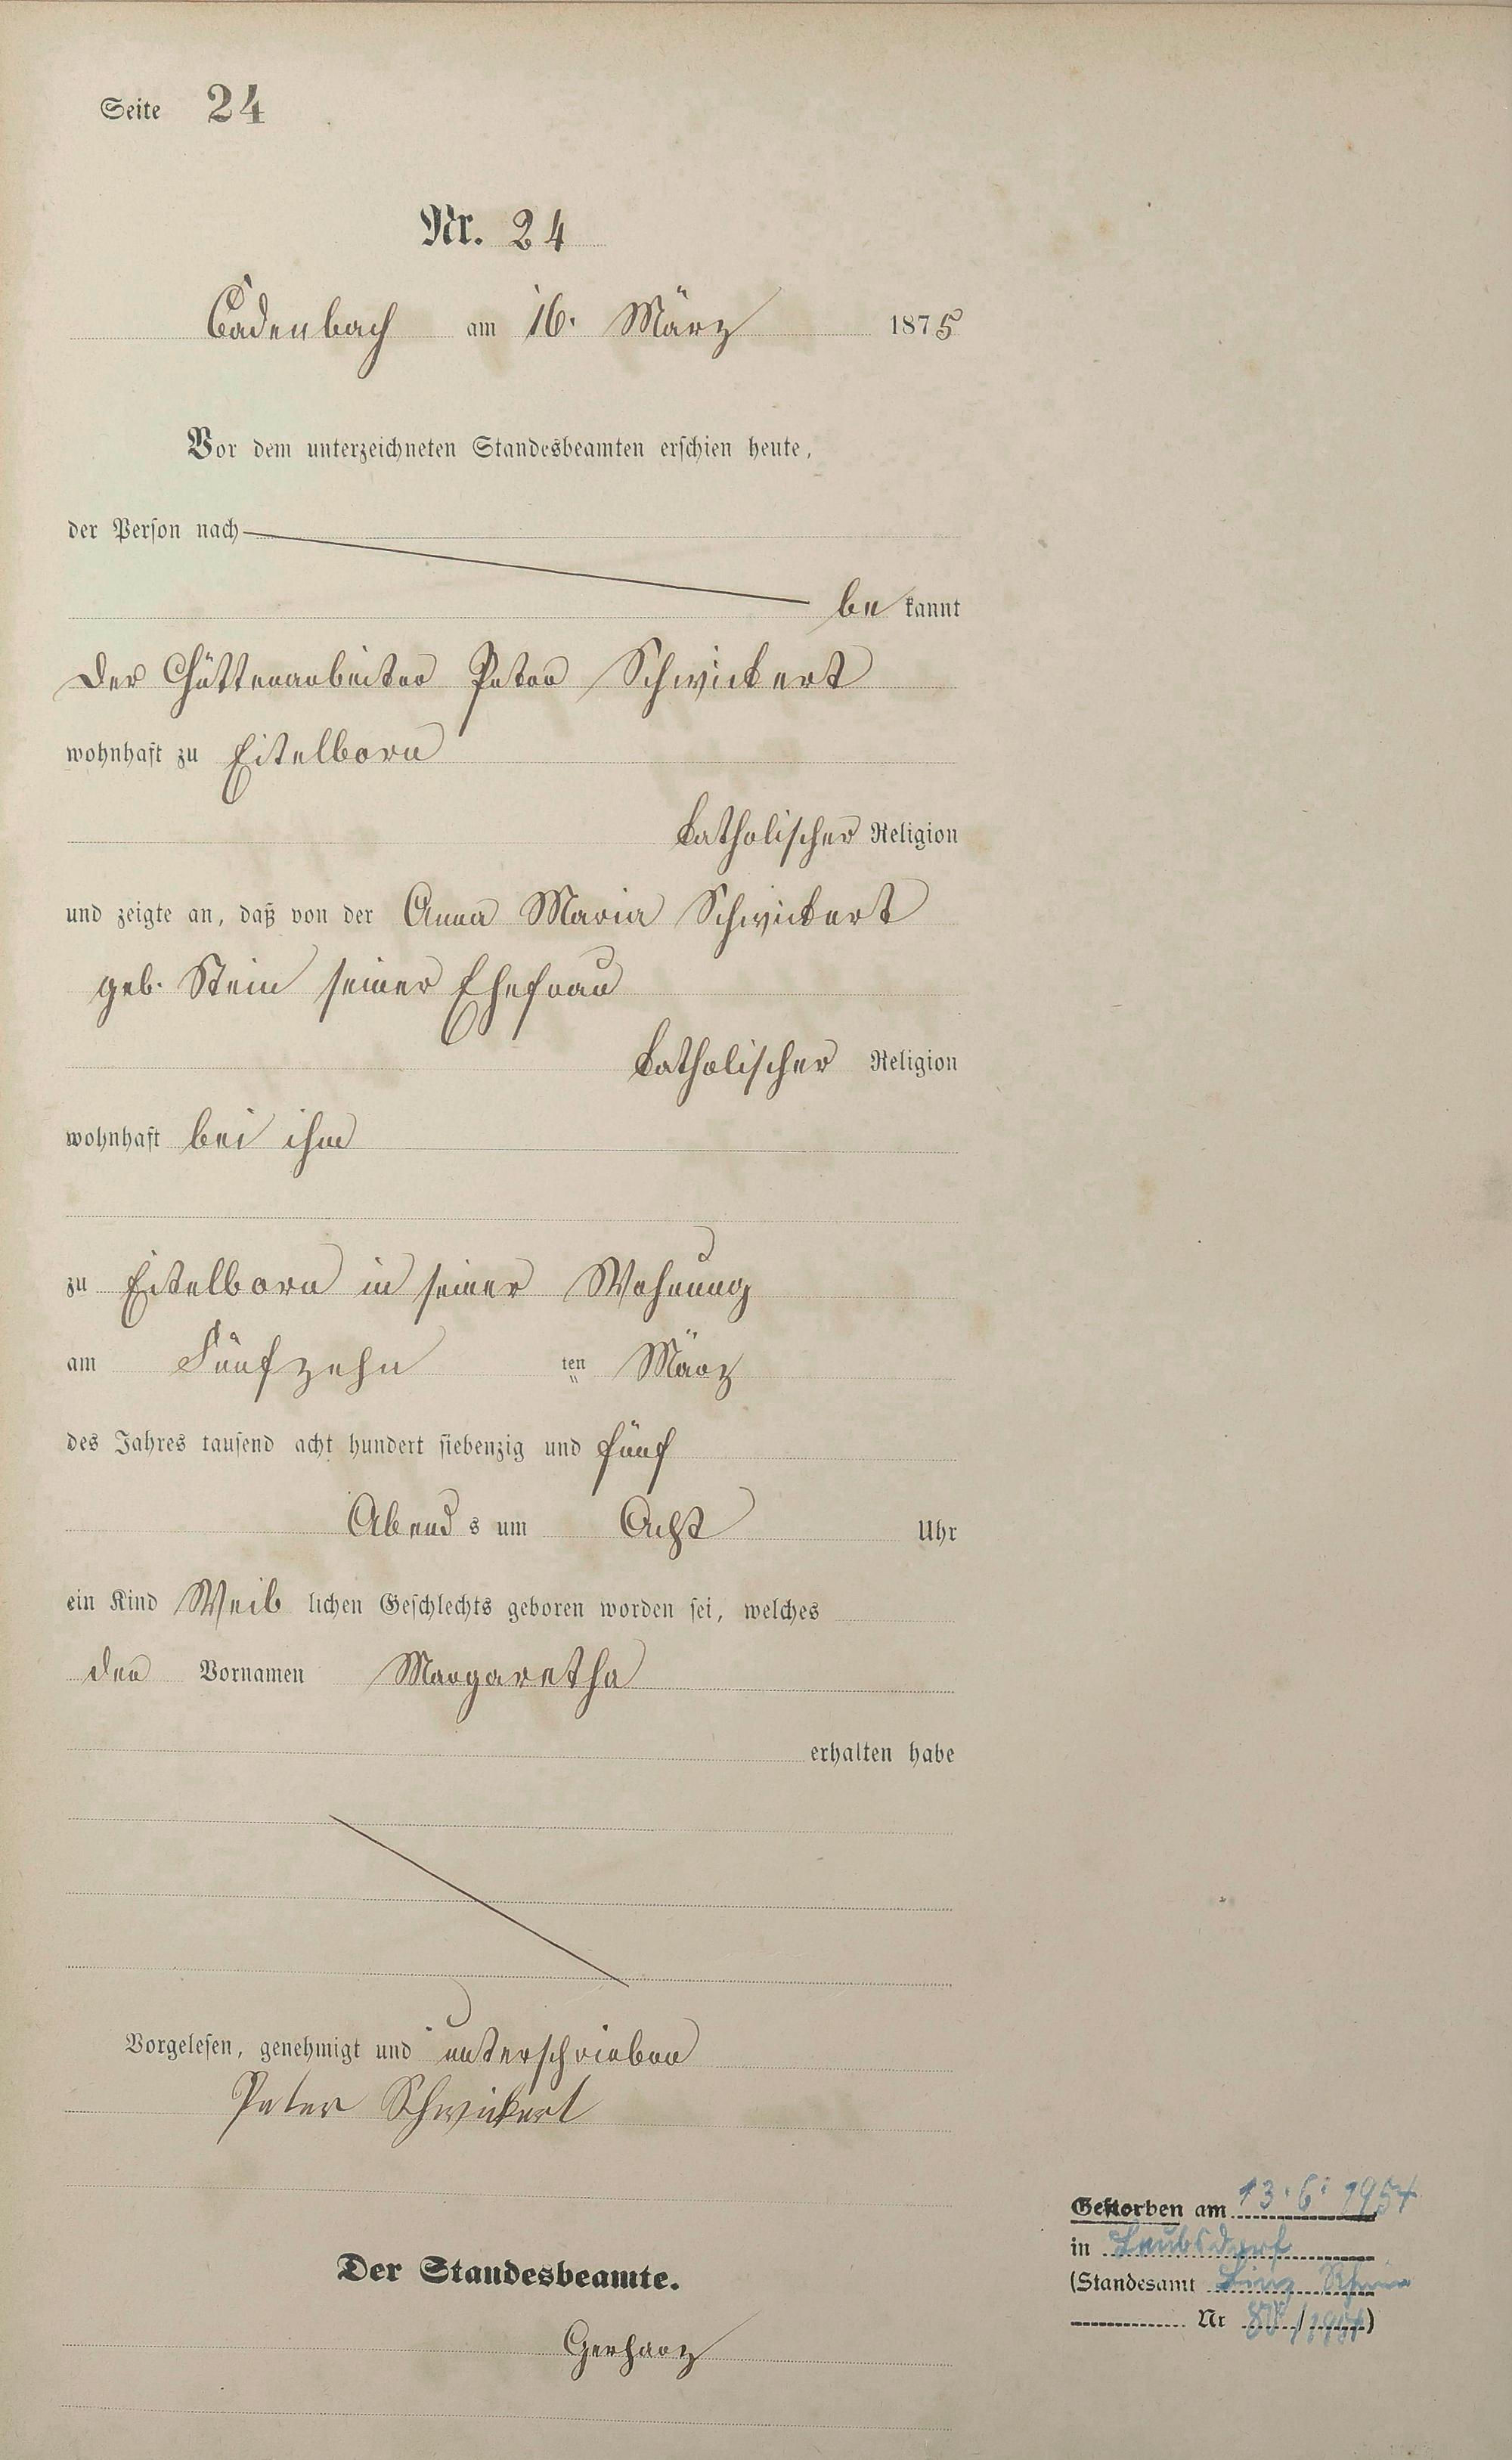 Seite 24
Nr. 24
Cadenbach am 16. März 1875
Vor dem unterzeichneten Standesbeamten erschien heute,
der Person nach
be kannt
der Hüttenarbeiter Peter Schwickert
wohnhaft zu Eitelborn
katholischer Religion
und zeigte an, daß von der Anna Maria Schwickert
geb. Stein seiner Ehefrau
katholischer Religion
wohnhaft bei ihm
zu Eitelborn in seiner Wohnung
am Fünfzehn ten März
des Jahres tausend acht hundert siebenzig und fünf
Abend s um Acht Uhr
ein Kind Weib lichen Geschlechts geboren worden sei, welches
den Vornamen Margaretha
erhalten habe
Vorgelesen, genehmigt und unterschrieben
Peter Schwickert
Der Standesbeamte.
Gerharz
Gestorben am 13.6.1954
in Laubsdorf
(Standesamt Linz Rhein
Nr /1954)